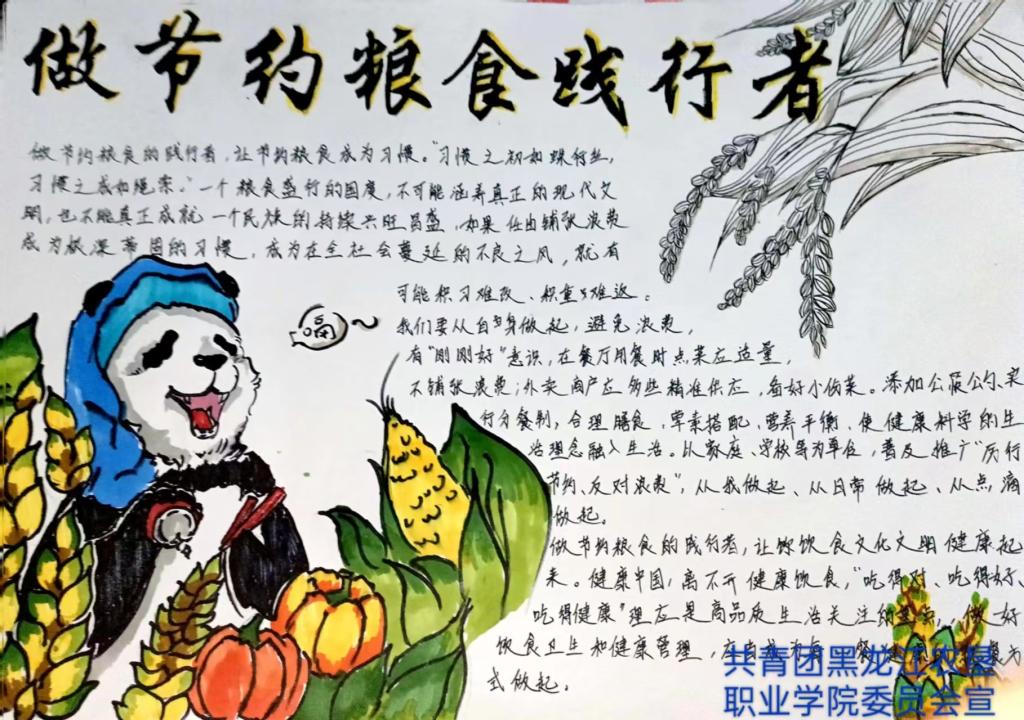 做节约粮食践行者
做节约粮食的践行者，让节约粮食成为习惯。“习惯之初如蛛丝，
习惯之成如绳索。”一个粮食盛行的国度，不可能涵养真正的现代文
明，也不能真正成就一个民族的持续兴旺昌盛，如果任由铺张浪费
成为根深蒂固的习惯，成为在全社会蔓延的不良之风，就有
可能积习难改、积重难返。
福
我们要从自身做起，避免浪费，
有“刚刚好”意识，在餐厅用餐时点菜应适量，
不铺张浪费；外卖商户应多些精准供应，看好小份菜。添加公筷公勺、实
行分餐制，合理膳食，荤素搭配，营养平衡、使健康科学的生
活理念融入生活。从家庭、学校等为单位，普及推广“厉行
节约、反对浪费”，从我做起、从日常做起、从点滴
做起。
做节约粮食的践行者，让饮食文化文明健康起
来。健康中国，离不开健康饮食，“吃得对、吃得好、
吃得健康”理应是高品质生活关注的 做一好
饮食卫生和健康管理，
式做起。
共青团黑龙江农垦
职业学院委员会宣